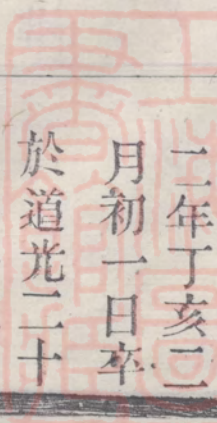 二年丁亥二
月初一日卒
於道光二十